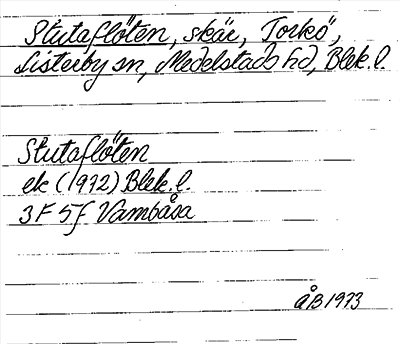 Stutaflöten, skär, Torkö,
Listerby sn, Medelstads hd, Blek. l.
Stutaflöten
ek (1972) Blek. l.
3F 5f Vambåsa
ÅB 1973